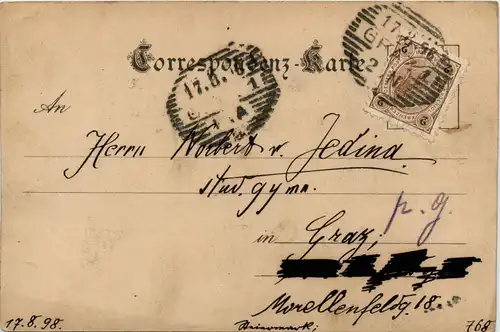 17.8.98
GRAZ
2
2
Correspondenz-Karte
17.8.
1
An
Herrn Norbert v. Jedina
stud. gymn.
p. g.
in Graz,
Morellenfeldg. 18.
17.8.98.
Steiermark;
768.